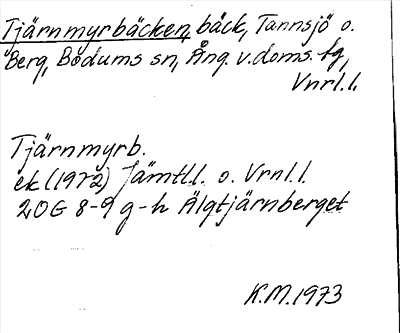 Tjärnmyrbäcken, bäck, Tannsjö o.
Berg, Bodums sn, Ång. v. doms. fg,
Vnrl.l.
Tjärnmyrb.
ek (1972) Jämtl.l. o. Vrnl.l.
20G 8-9 g-h Älgtjärnberget
K.M. 1973